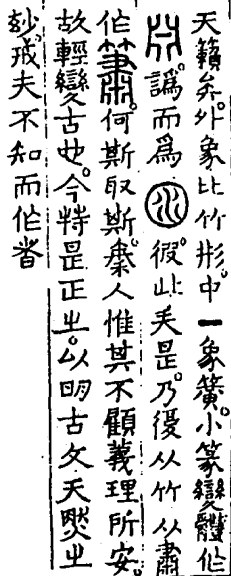 天籟矣。外象比竹形。中一象簧。小篆變體作
譌而爲。彼此失是。乃復从竹从肅
作簫。何斯取斯。秦人惟其不顧義理所安。
故輕變古也。今特是正之。以明古文天然之
妙。戒夫不知而作者